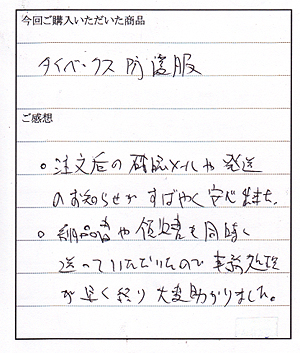 今回ご購入いただいた商品
タイベックス防護服
ご感想
。注文后の確認メールや発送
のお知らせがすばやく安心出来た。
。納品書や領収書も同時に
送っていただいたので事務処理
が早く終り大変助かりました。